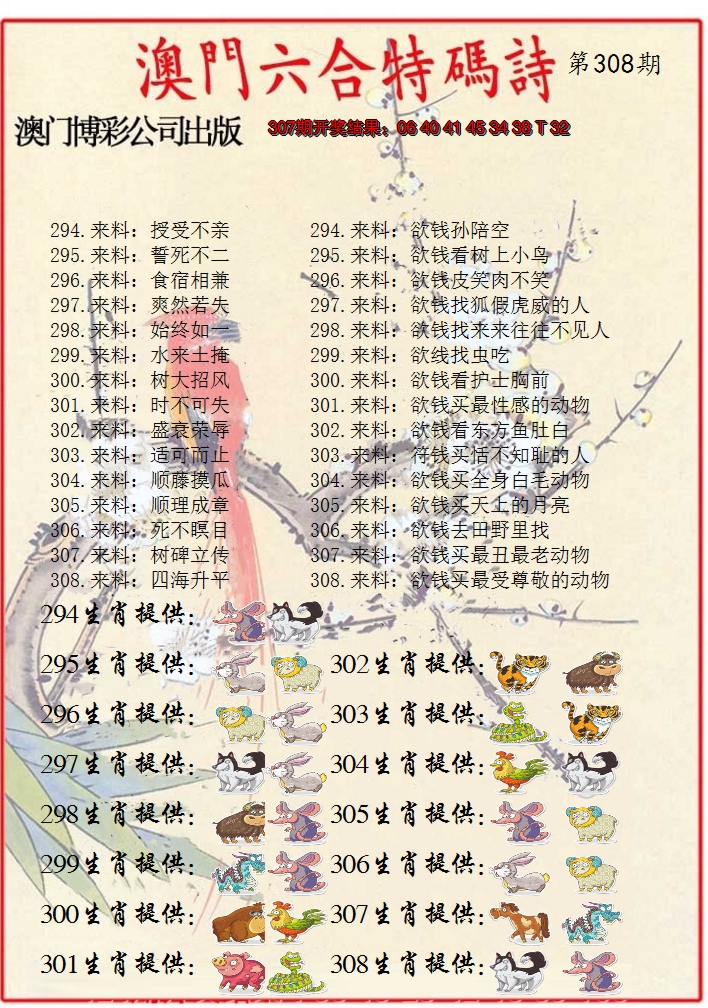 澳門六合特碼詩 第308期
澳门博彩公司出版 307期开奖结果：06 40 41 45 34 38 T 32
294.来料：授受不亲 294.来料：欲钱孙陪空
295.来料：誓死不二 295.来料：欲钱看树上小鸟
296.来料：食宿相兼 296.来料：欲钱皮笑肉不笑
297.来料：爽然若失 297.来料：欲钱找狐假虎威的人
298.来料：始终如一 298.来料：欲钱找来来往往不见人
299.来料：水来土掩 299.来料：欲线找虫吃
300.来料：树大招风 300.来料：欲钱看护士胸前
301.来料：时不可失 301.来料：欲钱买最性感的动物
302.来料：盛衰荣辱 302.来料：欲钱看东方鱼肚白
303.来料：适可而止 303.来料：符钱买恬不知耻的人
304.来料：顺藤摸瓜 304.来料：欲钱买全身白毛动物
305.来料：顺理成章 305.来料：欲钱买天上的月亮
306.来料：死不瞑目 306.来料：欲钱去田野里找
307.来料：树碑立传 307.来料：欲钱买最丑最老动物
308.来料：四海升平 308.来料：欲钱买最受尊敬的动物
294生肖提供：
295生肖提供： 302生肖提供：
296生肖提供： 303生肖提供：
297生肖提供： 304生肖提供：
298生肖提供： 305生肖提供：
299生肖提供： 306生肖提供：
300生肖提供： 307生肖提供：
301生肖提供： 308生肖提供：